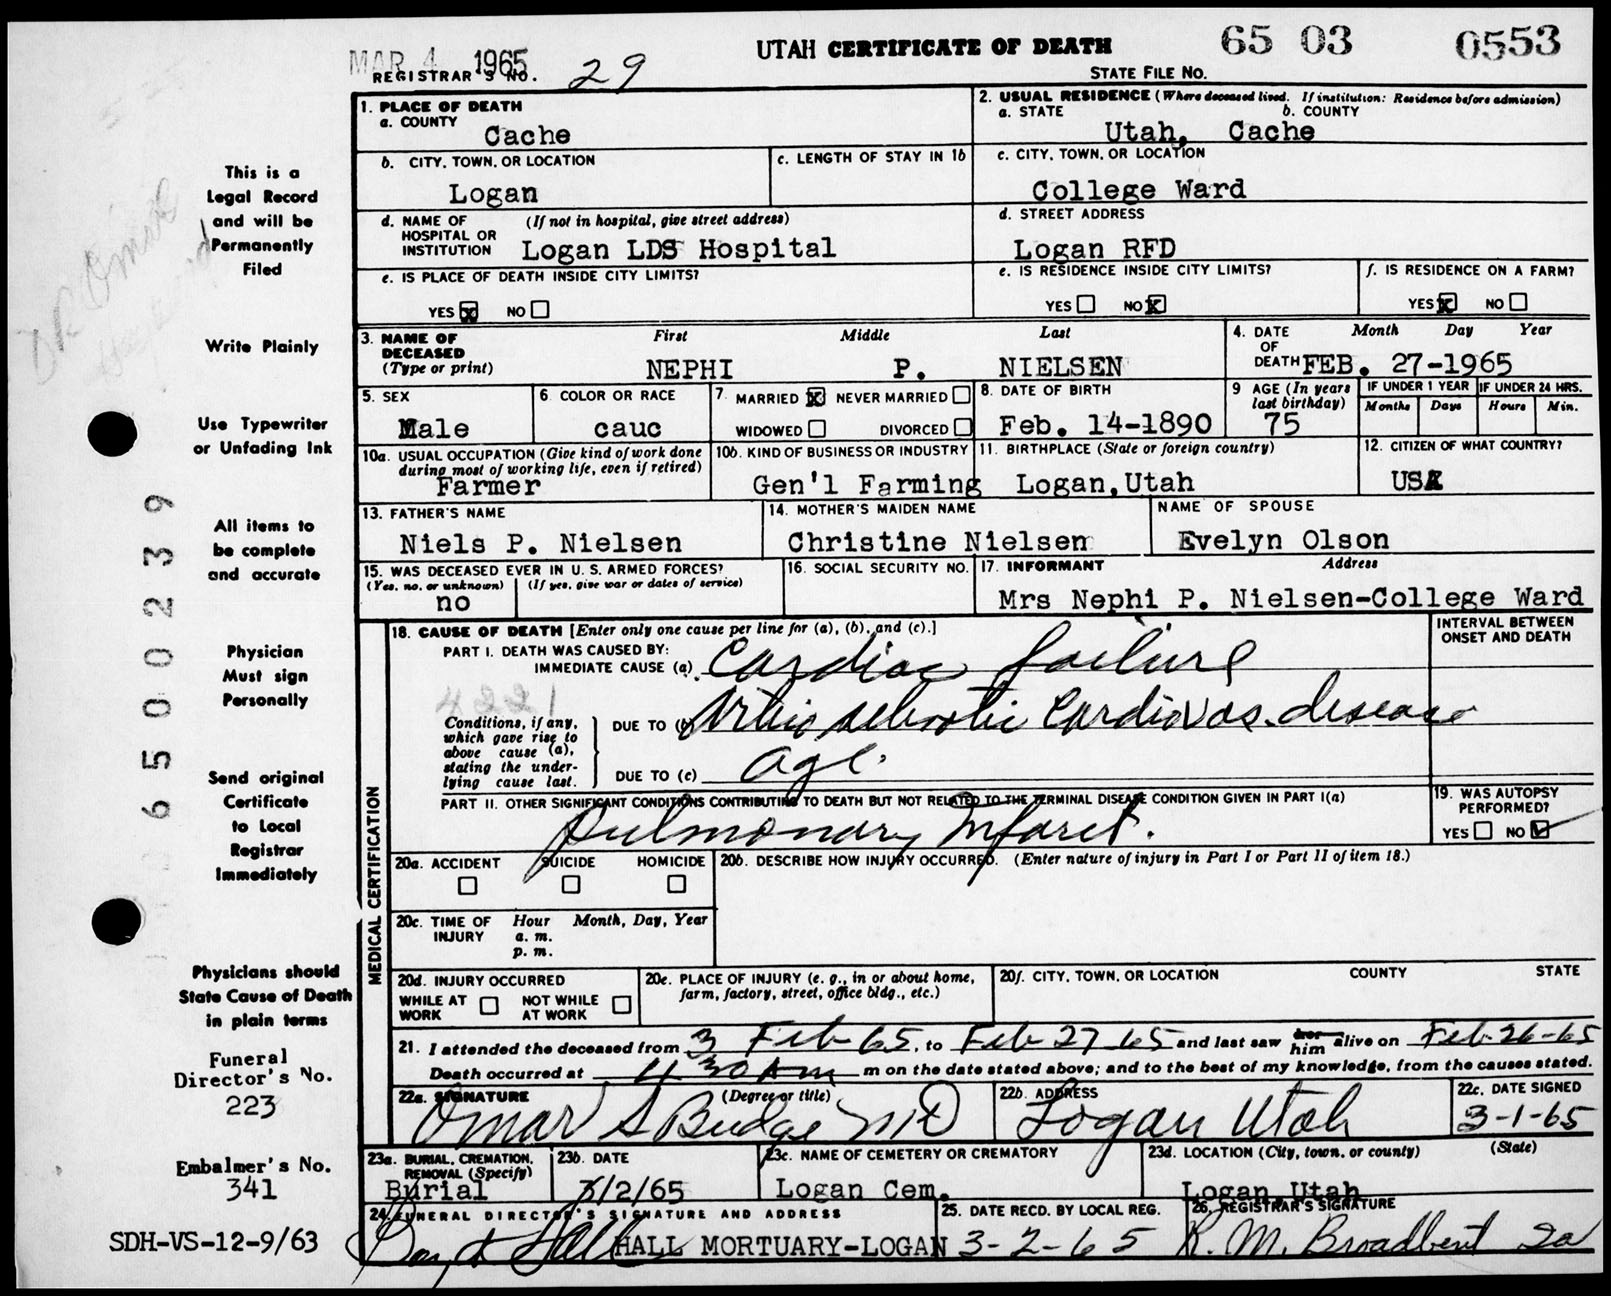 MAR 4 1965
REGISTRAR'S NO. 29
UTAH CERTIFICATE OF DEATH
65 03 0553
STATE FILE NO.
1. PLACE OF DEATH
a. COUNTY
Cache
2. USUAL RESIDENCE (Where deceased lived. If institution: Residence before admission)
a. STATE b. COUNTY
Utah, Cache
b. CITY, TOWN, OR LOCATION
Logan
c. LENGTH OF STAY IN 1b
c. CITY, TOWN, OR LOCATION
College Ward
d. NAME OF HOSPITAL OR INSTITUTION (If not in hospital, give street address)
Logan LDS Hospital
d. STREET ADDRESS
Logan RFD
e. IS PLACE OF DEATH INSIDE CITY LIMITS?
YES X NO
e. IS RESIDENCE INSIDE CITY LIMITS?
YES NO X
f. IS RESIDENCE ON A FARM?
YES X NO
3. NAME OF DECEASED (Type or print)
First Middle Last
NEPHI P. NIELSEN
4. DATE OF DEATH Month Day Year
FEB. 27-1965
5. SEX
Male
6. COLOR OR RACE
cauc
7. MARRIED X NEVER MARRIED
WIDOWED DIVORCED
8. DATE OF BIRTH
Feb. 14-1890
9 AGE (In years last birthday)
75
IF UNDER 1 YEAR
Months Days
IF UNDER 24 HRS.
Hours Min.
10a. USUAL OCCUPATION (Give kind of work done during most of working life, even if retired)
Farmer
10b. KIND OF BUSINESS OR INDUSTRY
Gen'l Farming
11. BIRTHPLACE (State or foreign country)
Logan,Utah
12. CITIZEN OF WHAT COUNTRY?
USA
13. FATHER'S NAME
Niels P. Nielsen
14. MOTHER'S MAIDEN NAME
Christine Nielsen
NAME OF SPOUSE
Evelyn Olson
15. WAS DECEASED EVER IN U. S. ARMED FORCES?
(Yes, no, or unknown) (If yes, give war or dates of service)
no
16. SOCIAL SECURITY NO.
17. INFORMANT Address
Mrs Nephi P. Nielsen-College Ward
MEDICAL CERTIFICATION
18. CAUSE OF DEATH [Enter only one cause per line for (a), (b), and (c).]
INTERVAL BETWEEN ONSET AND DEATH
PART I. DEATH WAS CAUSED BY:
IMMEDIATE CAUSE (a) Cardiac failure
4221
Conditions, if any, which gave rise to above cause (a), stating the underlying cause last.
DUE TO (b) Artério sclerotic Cardiovas. disease
DUE TO (c) age.
PART II. OTHER SIGNIFICANT CONDITIONS CONTRIBUTING TO DEATH BUT NOT RELATED TO THE TERMINAL DISEASE CONDITION GIVEN IN PART I(a)
Pulmonary Infarct.
19. WAS AUTOPSY PERFORMED?
YES NO ✓
20a. ACCIDENT SUICIDE HOMICIDE
20b. DESCRIBE HOW INJURY OCCURRED. (Enter nature of injury in Part I or Part II of item 18.)
20c. TIME OF INJURY Hour Month, Day, Year
a. m.
p. m.
20d. INJURY OCCURRED
WHILE AT WORK NOT WHILE AT WORK
20e. PLACE OF INJURY (e. g., in or about home, farm, factory, street, office bldg., etc.)
20f. CITY, TOWN, OR LOCATION COUNTY STATE
21. I attended the deceased from 3 Feb 65, to Feb 27 65 and last saw her him alive on Feb-26-65
Death occurred at 4 30 AM m on the date stated above; and to the best of my knowledge, from the causes stated.
22a. SIGNATURE (Degree or title)
Omar S Budge MD
22b. ADDRESS
Logan Utah
22c. DATE SIGNED
3-1-65
23a. BURIAL, CREMATION, REMOVAL (Specify)
Burial
23b. DATE
3/2/65
23c. NAME OF CEMETERY OR CREMATORY
Logan Cem.
23d. LOCATION (City, town, or county) (State)
Logan,Utah
24 FUNERAL DIRECTOR'S SIGNATURE AND ADDRESS
HALL MORTUARY-LOGAN
25. DATE RECD. BY LOCAL REG.
3-2-65
26. REGISTRAR'S SIGNATURE
R. M. Broadbent
This is a
Legal Record
and will be
Permanently
Filed
Write Plainly
Use Typewriter
or Unfading Ink
All items to
be complete
and accurate
Physician
Must sign
Personally
Send original
Certificate
to Local
Registrar
Immediately
Physicians should
State Cause of Death
in plain terms
Funeral
Director's No.
223
Embalmer's No.
341
SDH-VS-12-9/63
6500239